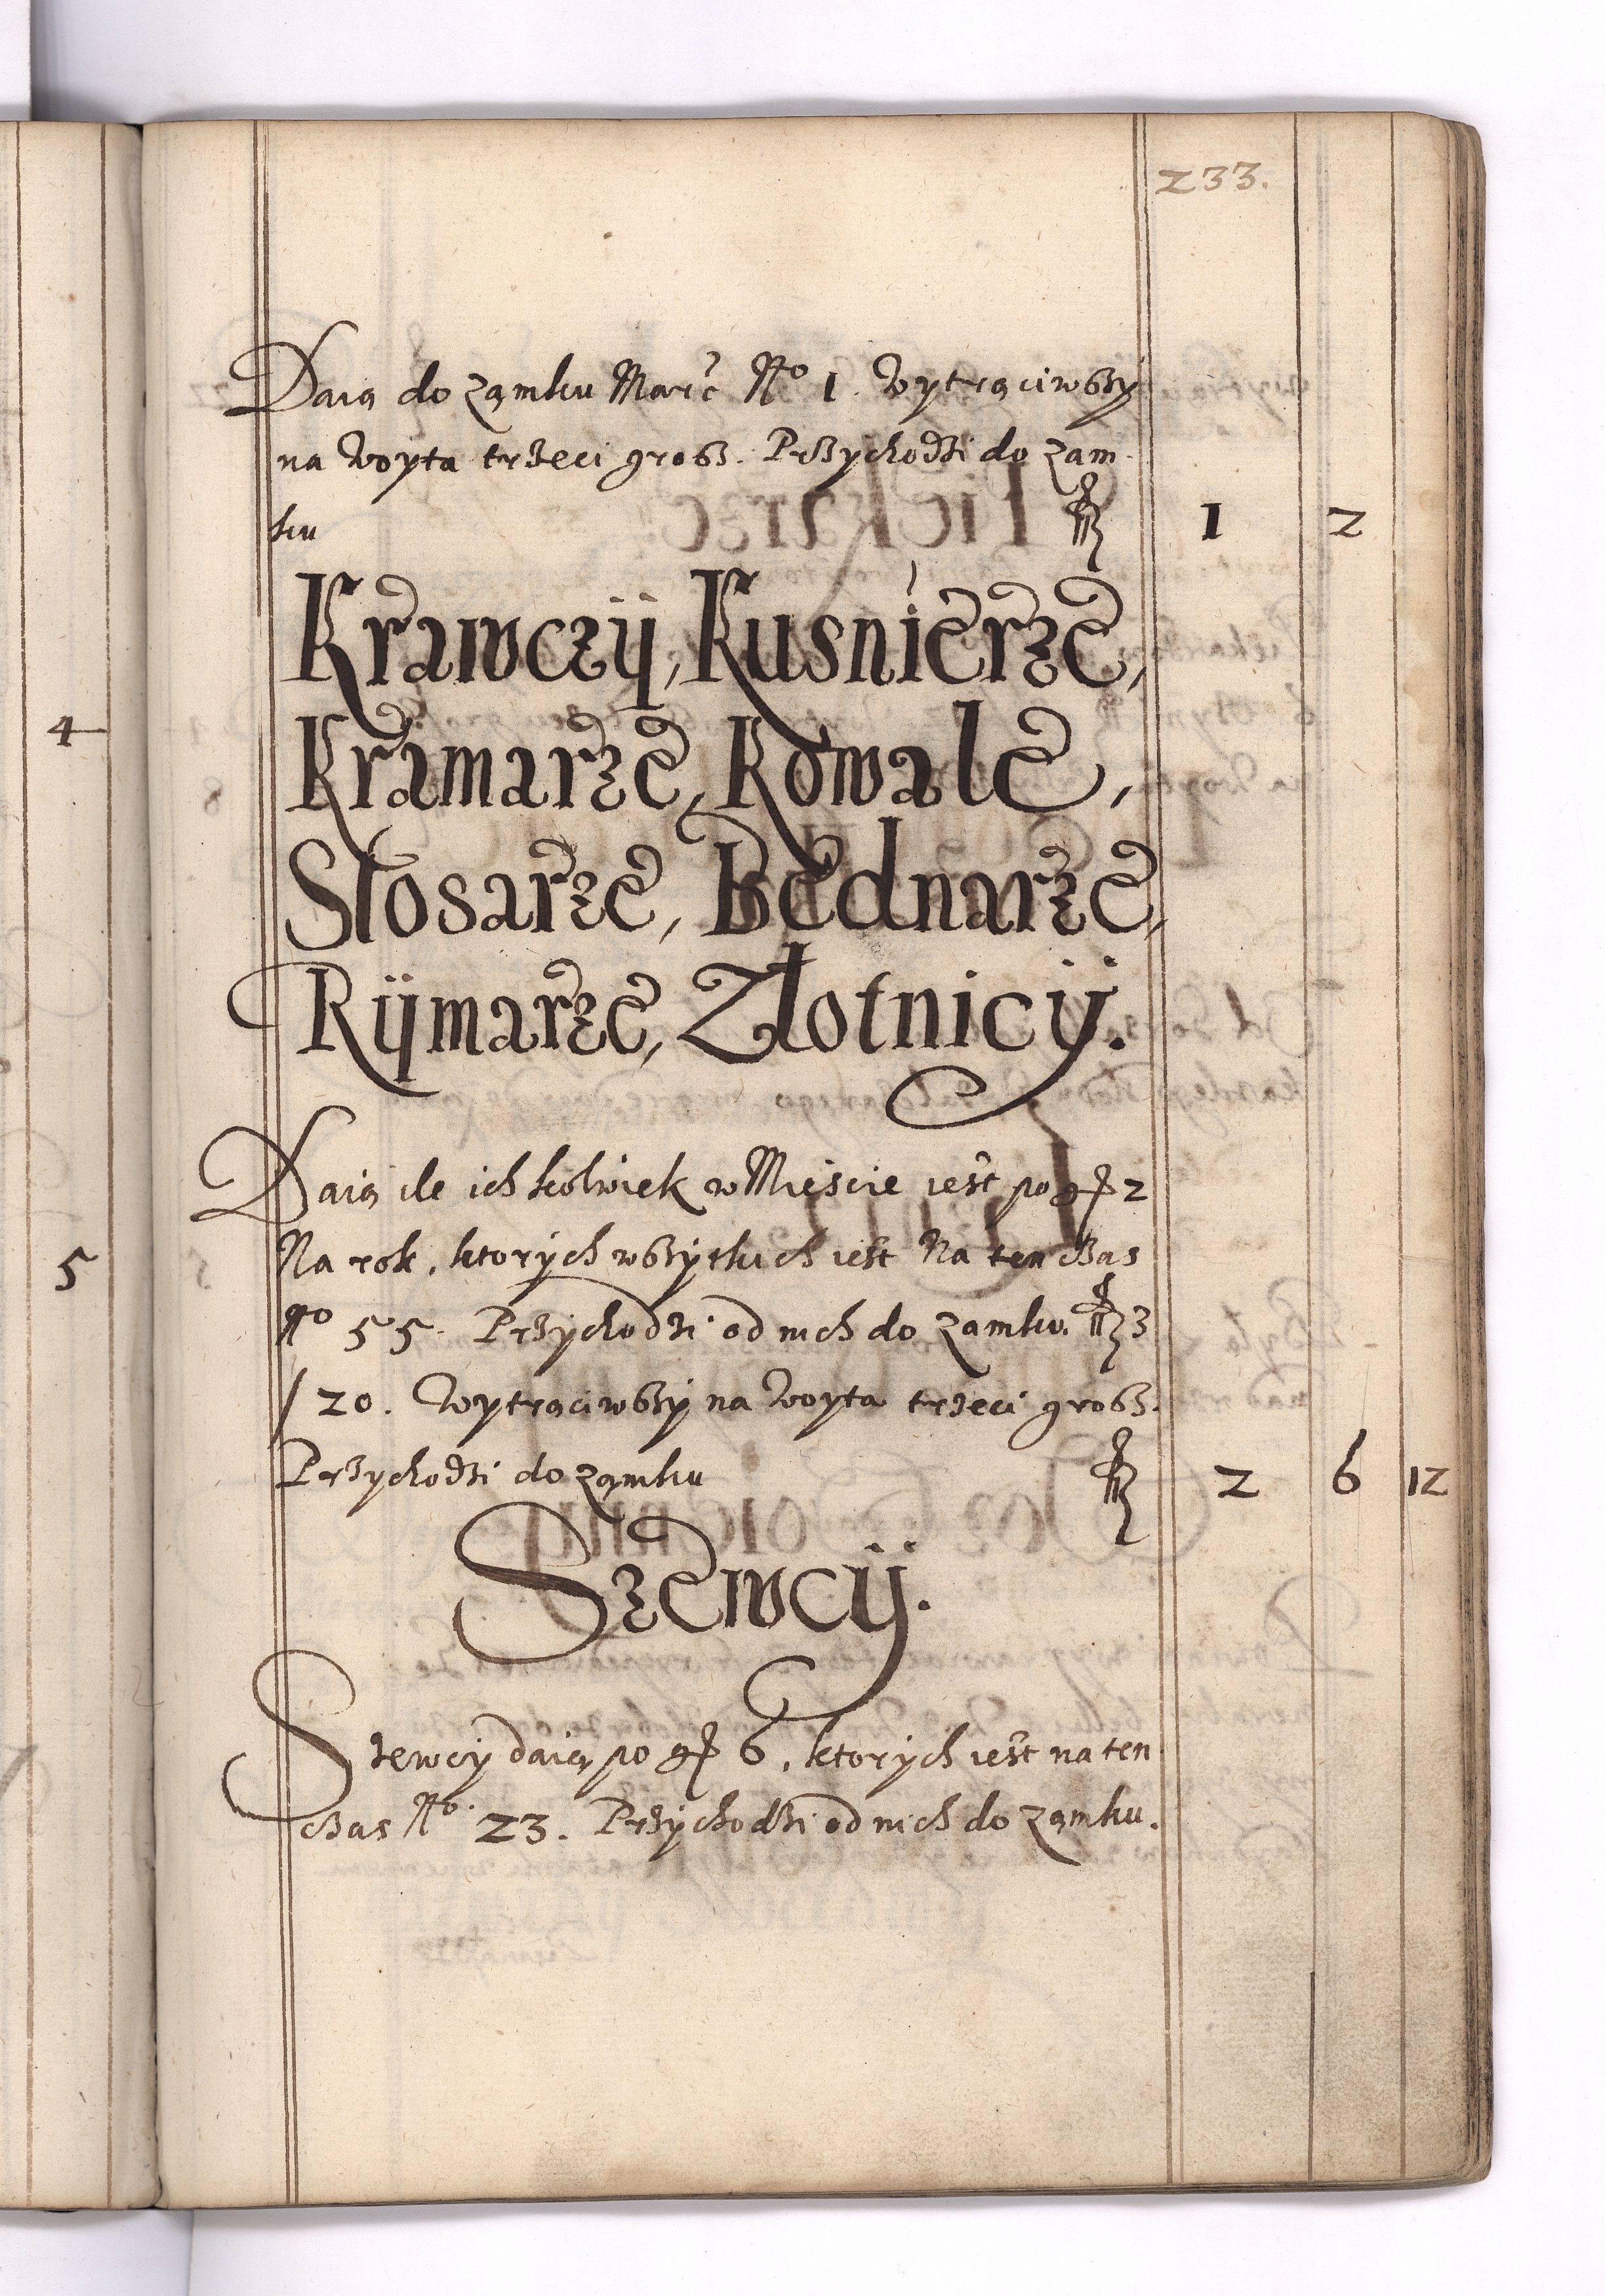 233.
Daią do zamku Marc No 1. Wytrąciwszy
na Woyta trzeci grosz. Przychodzi do zam-
ku 1 2
Krawczÿ, Kusnierze,
Kramarze, Kowale,
Słosarze, Bednarze,
Rÿmarze, Złotnicÿ.
4
Daią ile ich kolwiek w Mieście iest po gr 2
Na rok, ktorych wszytkich iest Na ten czas
5
No 55. Przychodzi od nich do zamku 3
/ 20. Wytrąciwszy na Woyta trzeci grosz.
Przychodzi do zamku 2 6 12
Szewcÿ.
Szewcy daią po gr 6, ktorych iest na ten
czas No. 23. Przychodzi od nich do zamku.